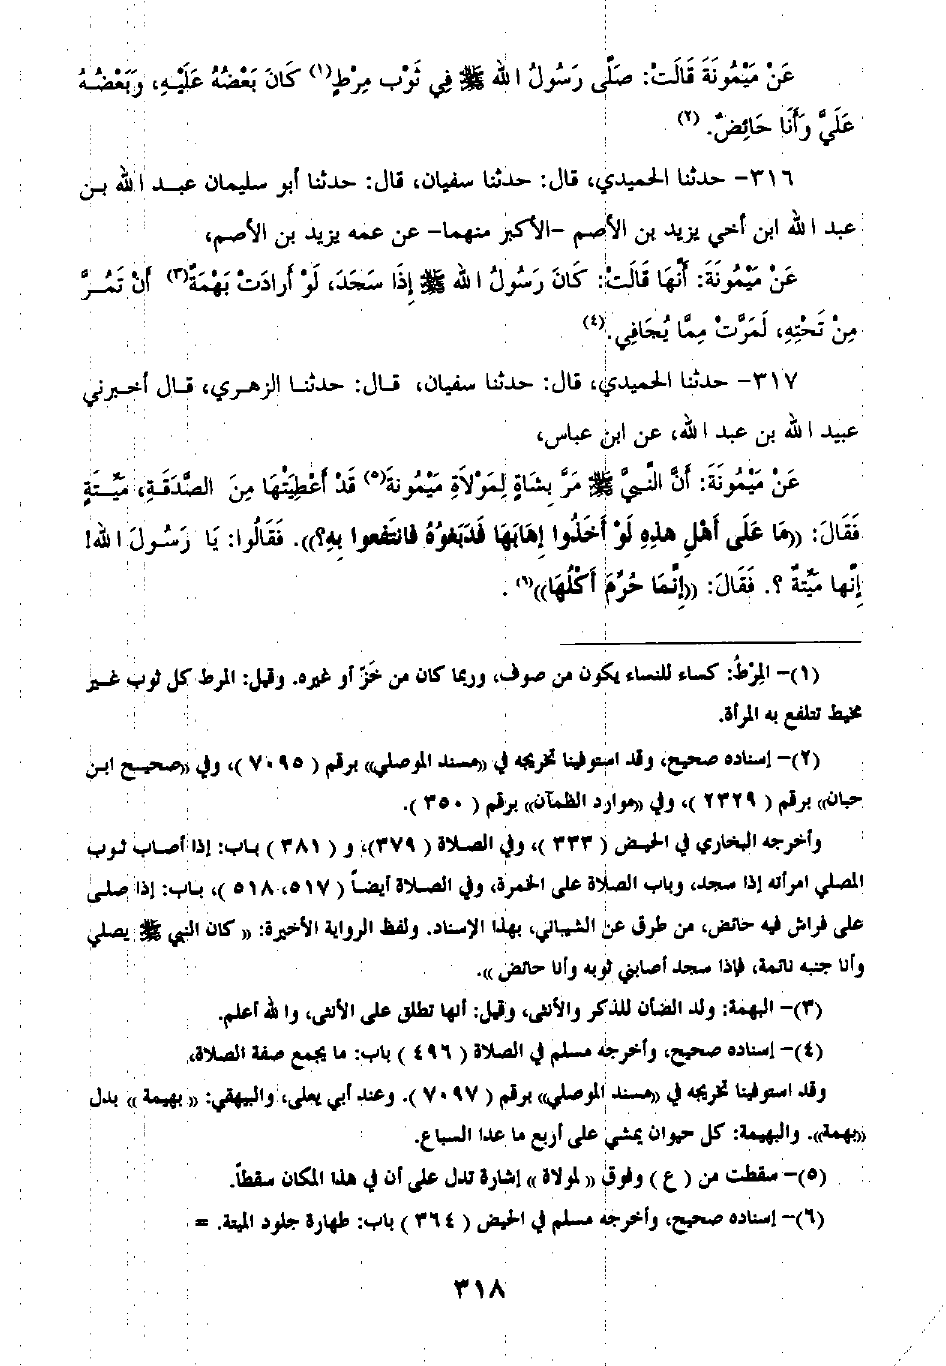 عَنْ مَيْمُونَةَ قَالَتْ: صَلَّى رَسُولُ الله ﷺ فِي ثَوْبِ مِرْطٍ(١) كَانَ بَعْضُهُ عَلَيْهِ، وَبَعْضُهُ
عَلَيَّ وَأَنَا حَائِضٌ. (٢)
٣١٦- حدثنا الحميدي، قال: حدثنا سفيان، قال: حدثنا أبو سليمان عبد الله بن
عبد الله ابن أخي يزيد بن الأصم -الأكبر منهما- عن عمه يزيد بن الأصم،
عَنْ مَيْمُونَةَ: أَنَّهَا قَالَتْ: كَانَ رَسُولُ الله ﷺ إِذَا سَجَدَ، لَوْ أَرادَتْ بَهْمَةٌ(٣) أَنْ تَمُرَّ
مِنْ تَحْتِهِ، لَمَرَّتْ مِمَّا يُجَافِي.(٤)
٣١٧- حدثنا الحميدي، قال: حدثنا سفيان، قال: حدثنا الزهري، قال أخبرني
عبيد الله بن عبد الله، عن ابن عباس،
عَنْ مَيْمُونَةَ: أَنَّ النَّبِيَّ ﷺ مَرَّ بِشَاةٍ لِمَوْلاَةِ مَيْمُونةَ(٥) قَدْ أُعْطِيَتْهَا مِنَ الصَّدَقَةِ، مَيْتَةٍ
فَقَالَ: ((مَا عَلَى أَهْلِ هذِهِ لَوْ أَخَذُوا إِهَابَهَا فَدَبَغُوُهُ فانتَفعوا بِهِ؟)). فَقَالُوا: يَا رَسُولَ الله!
إِنَّها مَيْتةٌ ؟. فَقَالَ: ((إِنَّمَا حُرِّمَ أَكْلُهَا))(٦) .
(١)- المِرْطُ: كساء للنساء يكون من صوف، وربما كان من خَزّ أو غيره. وقيل: المرط كل ثوب غير
مخيط تتلفع به المرأة.
(٢)- إسناده صحيح، وقد استوفينا تخريجه في ((مسند الموصلي)) برقم ( ٧٠٩٥ )، وفي ((صحيح ابن
حبان)) برقم ( ٢٣٢٩ )، وفي ((موارد الظمآن)) برقم ( ٣٥٠ ).
وأخرجه البخاري في الحيض ( ٣٣٣ )، وفي الصلاة ( ٣٧٩ )، و ( ٣٨١ ) باب: إذا أصاب ثوب
المصلي امرأته إذا سجد، وباب الصلاة على الخمرة، وفي الصلاة أيضاً ( ٥١٧، ٥١٨ )، باب: إذا صلى
على فراش فيه حائض، من طرق عن الشيباني، بهذا الإسناد. ولفظ الرواية الأخيرة: (( كان النبي ﷺ يصلي
وأنا جنبه نائمة، فإذا سجد أصابني ثوبه وأنا حائض )).
(٣)- البهمة: ولد الضأن للذكر والأنثى، وقيل: أنها تطلق على الأنثى، والله أعلم.
(٤)- إسناده صحيح، وأخرجه مسلم في الصلاة ( ٤٩٦ ) باب: ما يجمع صفة الصلاة،
وقد استوفينا تخريجه في ((مسند الموصلي)) برقم ( ٧٠٩٧ ). وعند أبي يعلى، والبيهقي: (( بهيمة )) بدل
((بهمة)). والبهيمة: كل حيوان يمشي على أربع ما عدا السباع.
(٥)- سقطت من ( ع ) وفوق (( لمولاة )) إشارة تدل على أن في هذا المكان سقطاً.
(٦)- إسناده صحيح، وأخرجه مسلم في الحيض ( ٣٦٤ ) باب: طهارة جلود الميتة. =
٣١٨